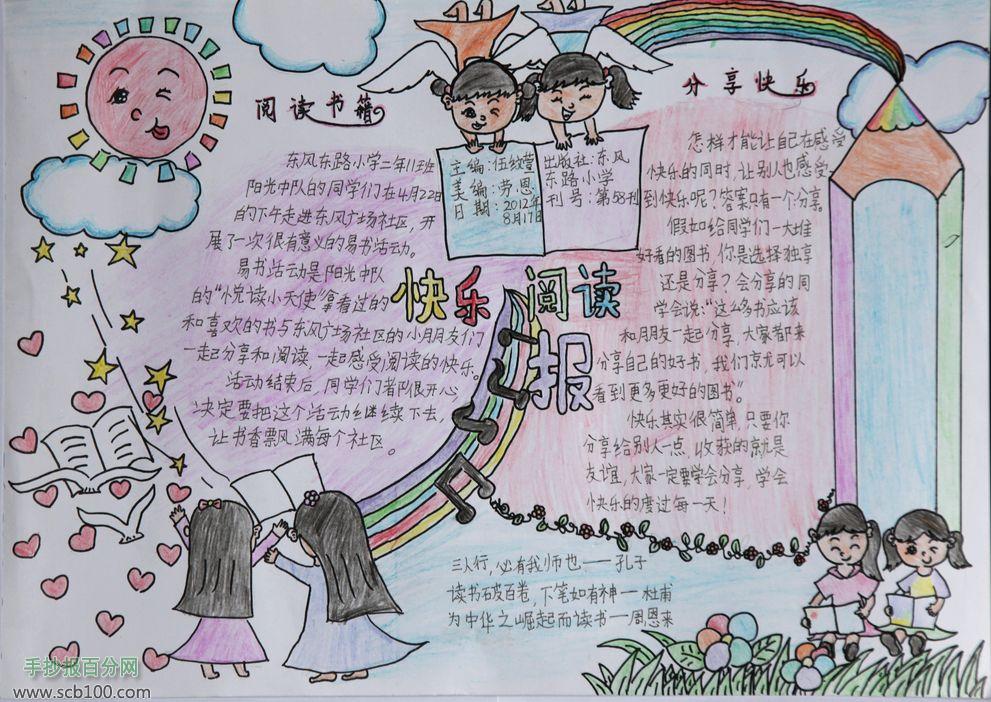 阅读书籍
东风东路小学二年11班
阳光中队的同学们在4月22日
的下午走进东风广场社区，开
展了一次很有意义的易书活动。
易书活动是阳光中队
的“悦读小天使”拿看过的
和喜欢的书与东风广场社区的小朋友们
一起分享和阅读，一起感受阅读的快乐。
活动结束后，同学们都很开心
决定要把这个活动继续下去，
让书香飘满每个社区。
主编：伍纹萱
美编：劳恩
日期：2012年
8月17日
出版社：东风
东路小学
刊号：第58刊
快乐阅读
报
分享快乐
怎样才能让自己在感受
快乐的同时，让别人也感受
到快乐呢？答案只有一个分享。
假如给同学们一大堆
好看的图书，你是选择独享
还是分享？会分享的同
学会说：“这么多书应该
和朋友一起分享，大家都来
分享自己的好书，我们就可以
看到更多更好的图书”。
快乐其实很简单，只要你
分享给别人一点，收获的就是
友谊，大家一定要学会分享，学会
快乐的度过每一天！
三人行，必有我师也——孔子
读书破百卷，下笔如有神—杜甫
为中华之崛起而读书—周恩来
手抄报百分网
www.scb100.com